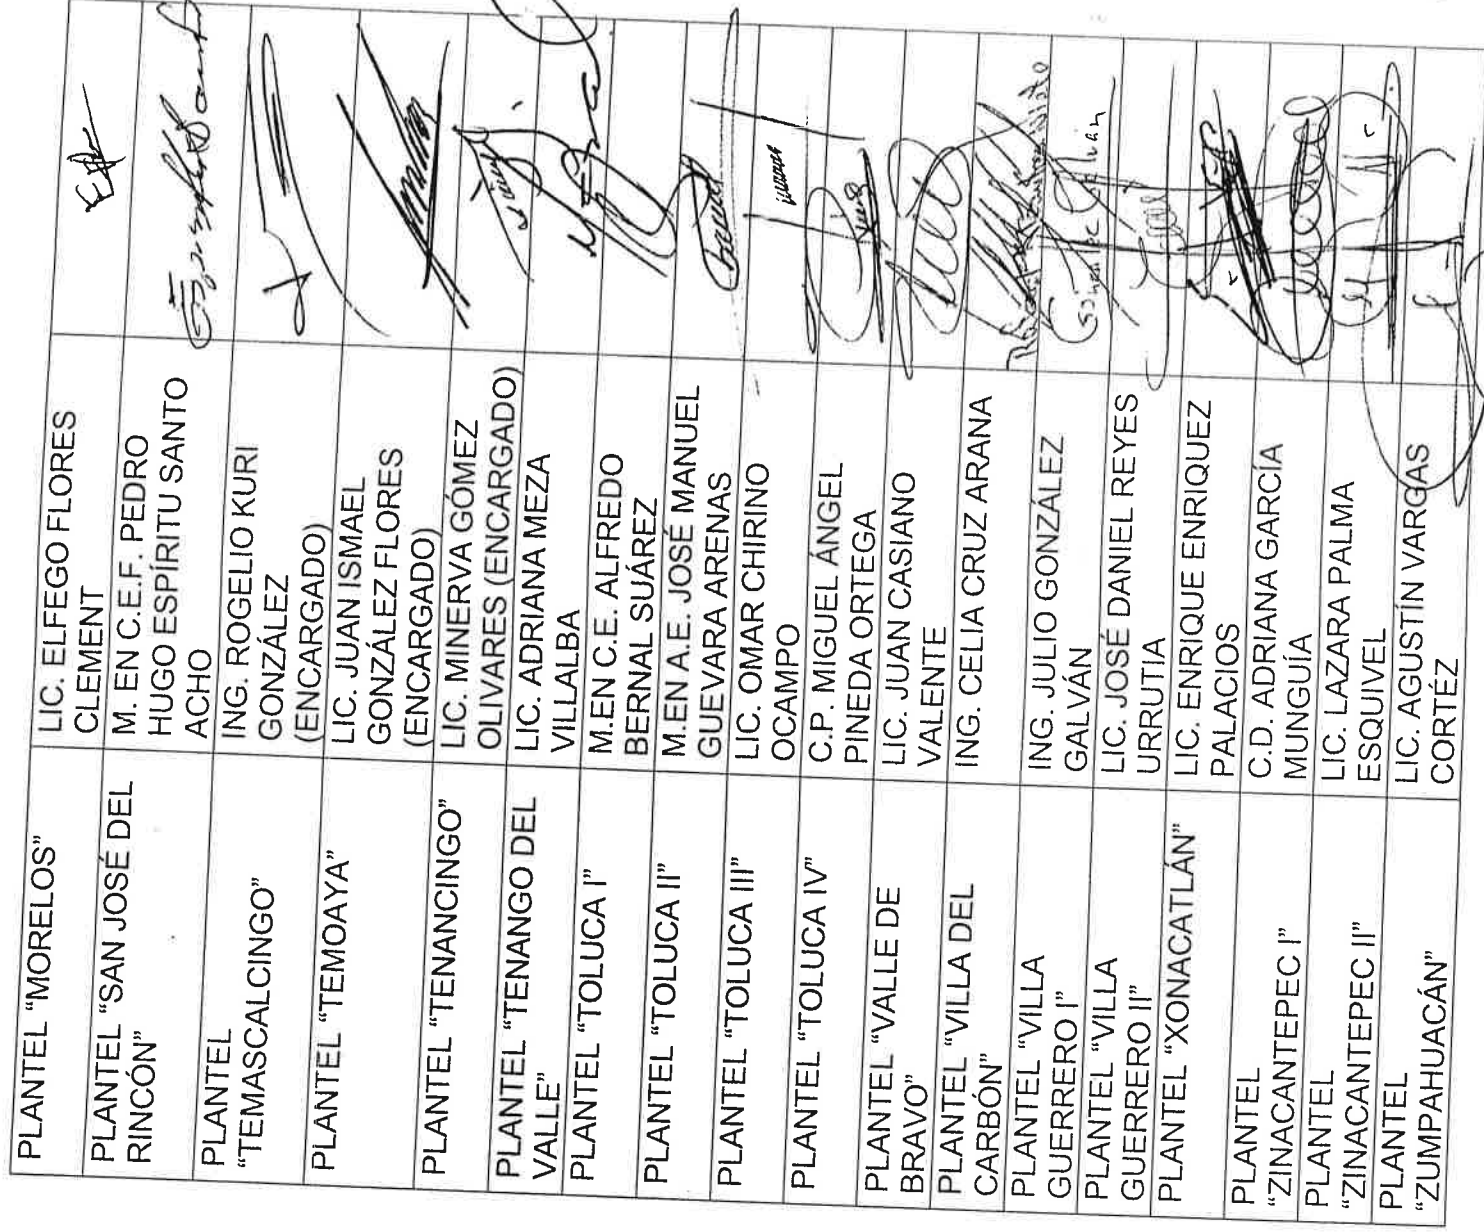 PLANTEL “MORELOS”
LIC. ELFEGO FLORES
CLEMENT
PLANTEL “SAN JOSÉ DEL
RINCÓN”
M. EN C.E.F. PEDRO
HUGO ESPÍRITU SANTO
ACHO
PLANTEL
“TEMASCALCINGO”
ING. ROGELIO KURI
GONZÁLEZ
(ENCARGADO)
PLANTEL “TEMOAYA”
LIC. JUAN ISMAEL
GONZÁLEZ FLORES
(ENCARGADO)
PLANTEL “TENANCINGO”
LIC. MINERVA GÓMEZ
OLIVARES (ENCARGADO)
PLANTEL “TENANGO DEL
VALLE”
LIC. ADRIANA MEZA
VILLALBA
PLANTEL “TOLUCA I”
M.EN C.E. ALFREDO
BERNAL SUÁREZ
PLANTEL “TOLUCA II”
M.EN A.E. JOSÉ MANUEL
GUEVARA ARENAS
PLANTEL “TOLUCA III”
LIC. OMAR CHIRINO
OCAMPO
PLANTEL “TOLUCA IV”
C.P. MIGUEL ÁNGEL
PINEDA ORTEGA
PLANTEL “VALLE DE
BRAVO”
LIC. JUAN CASIANO
VALENTE
PLANTEL “VILLA DEL
CARBÓN”
ING. CELIA CRUZ ARANA
PLANTEL “VILLA
GUERRERO I”
ING. JULIO GONZÁLEZ
GALVÁN
PLANTEL “VILLA
GUERRERO II”
LIC. JOSÉ DANIEL REYES
URRUTIA
PLANTEL “XONACATLÁN”
LIC. ENRIQUE ENRIQUEZ
PALACIOS
PLANTEL
“ZINACANTEPEC I”
C.D. ADRIANA GARCÍA
MUNGUÍA
PLANTEL
“ZINACANTEPEC II”
LIC. LAZARA PALMA
ESQUIVEL
PLANTEL
“ZUMPAHUACÁN”
LIC. AGUSTÍN VARGAS
CORTÉZ